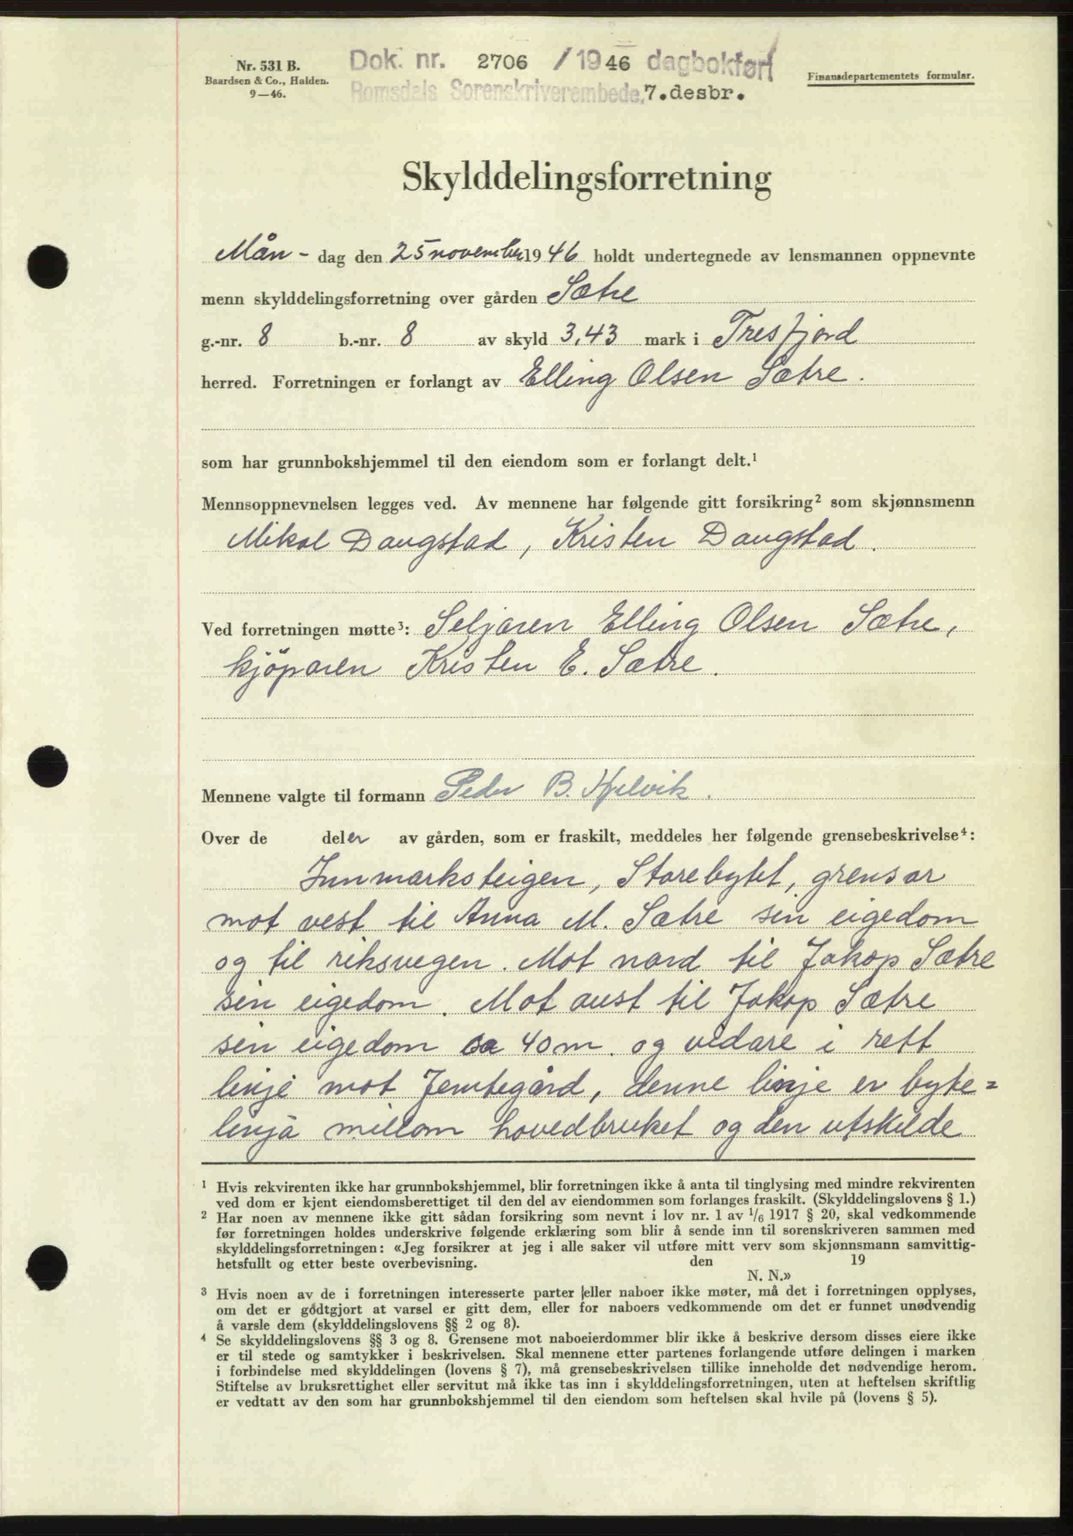 Nr. 531 B.
Baardsen & Co., Halden.
9—46.
Dok. nr. 2706 / 1946 dagbokført
Romsdals Sorenskriverembede, 7.desbr.
Finansdepartementets formular.
Skylddelingsforretning
Mån - dag den 25 november 1946 holdt undertegnede av lensmannen oppnevnte
menn skylddelingsforretning over gården Sætre
g.-nr. 8 b.-nr. 8 av skyld 3,43 mark i Tresfjord
herred. Forretningen er forlangt av Elling Olsen Sætre.
som har grunnbokshjemmel til den eiendom som er forlangt delt.¹
Mennsoppnevnelsen legges ved. Av mennene har følgende gitt forsikring² som skjønnsmenn
Mikal Daugstad, Kristen Daugstad.
Ved forretningen møtte³: Seljaren Elling Olsen Sætre,
kjöparen Kristen E. Sætre.
Mennene valgte til formann Peder B. Hjelvik.
Over de deler av gården, som er fraskilt, meddeles her følgende grensebeskrivelse⁴:
Innmarksteigen, Storebytet, grensar
mot vest til Anna M. Sætre sin eigedom
og til riksvegen. Mot nord til Jakop Sætre
sin eigedom. Mot aust til Jakop Sætre
sin eigedom ca 40 m. og vidare i rett
linje mot Jemtegård, denne linje er byte=
linja millom hovedbruket og den utskilde
¹ Hvis rekvirenten ikke har grunnbokshjemmel, blir forretningen ikke å anta til tinglysing med mindre rekvirenten
ved dom er kjent eiendomsberettiget til den del av eiendommen som forlanges fraskilt. (Skylddelingslovens § 1.)
² Har noen av mennene ikke gitt sådan forsikring som nevnt i lov nr. 1 av ¹/₆ 1917 § 20, skal vedkommende
før forretningen holdes underskrive følgende erklæring som blir å sende inn til sorenskriveren sammen med
skylddelingsforretningen: «Jeg forsikrer at jeg i alle saker vil utføre mitt verv som skjønnsmann samvittig-
hetsfullt og etter beste overbevisning. den 19
N. N.»
³ Hvis noen av de i forretningen interesserte parter eller naboer ikke møter, må det i forretningen opplyses,
om det er gødtgjort at varsel er gitt dem, eller for naboers vedkommende om det er funnet unødvendig
å varsle dem (skylddelingslovens §§ 2 og 8).
⁴ Se skylddelingslovens §§ 3 og 8. Grensene mot naboeierdommer blir ikke å beskrive dersom disses eiere ikke
er til stede og samtykker i beskrivelsen. Skal mennene etter partenes forlangende utføre delingen i marken
i forbindelse med skylddelingen (lovens § 7), må grensebeskrivelsen tillike inneholde det nødvendige herom.
Stiftelse av bruksrettighet eller servitut må ikke tas inn i skylddelingsforretningen, uten at heftelsen skriftlig
er vedtatt av den som har grunnbokshjemmel til den eiendom som heftelsen skal hvile på (lovens § 5).